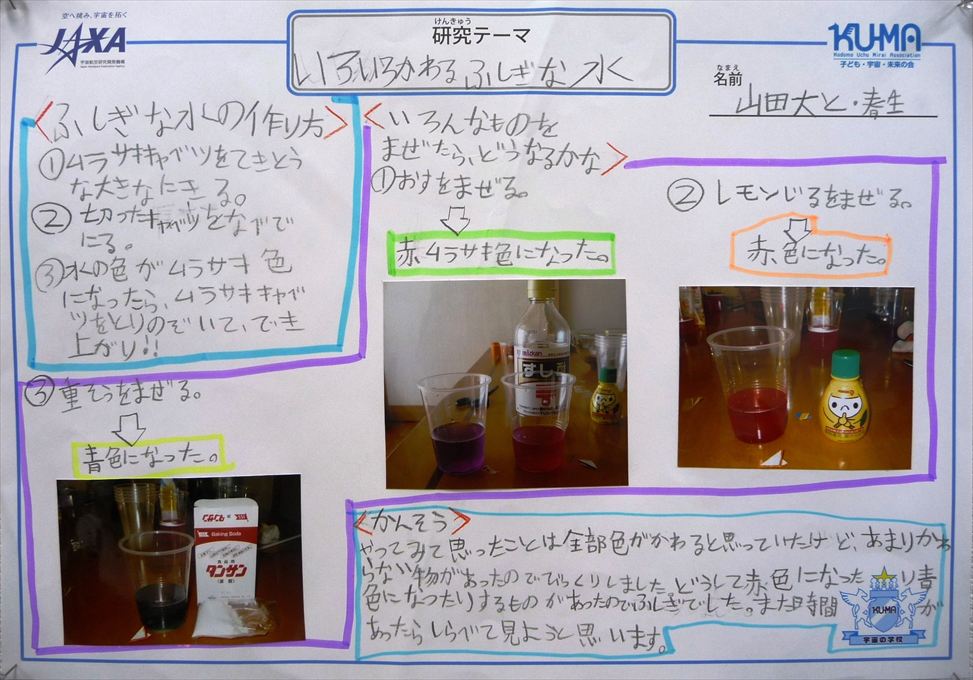 空へ挑み、宇宙を拓く
JAXA
宇宙航空研究開発機構
Japan Aerospace Exploration Agency
けんきゅう
研究テーマ
いろいろかわるふしぎな水
KUMA
Kodomo Uchu Mirai Association
子ども・宇宙・未来の会
なまえ
名前
山田大と・春生
<ふしぎな水の作り方>
①ムラサキキャベツをてきとう
な大きなにきる。
②切ったキャベツをなべで
にる。
③水の色がムラサキ色
になったら、ムラサキキャベ
ツをとりのぞいて、でき
上がり!!
<いろんなものを
まぜたら、どうなるかな>
①おすをまぜる。
赤ムラサキ色になった。
mizkan
すし酢
②レモンじるをまぜる。
赤色になった。
③重そうをまぜる。
青色になった。
Baking Soda
タンサン
<かんそう>
やってみて思ったことは全部色がかわると思っていたけど、あまりかわ
らない物があったのでびっくりしました。どうして赤色になった り青
色になったりするものがあったのでふしぎでした。また時間 が
あったらしらべて見ようと思います。
KUMA
宇宙の学校